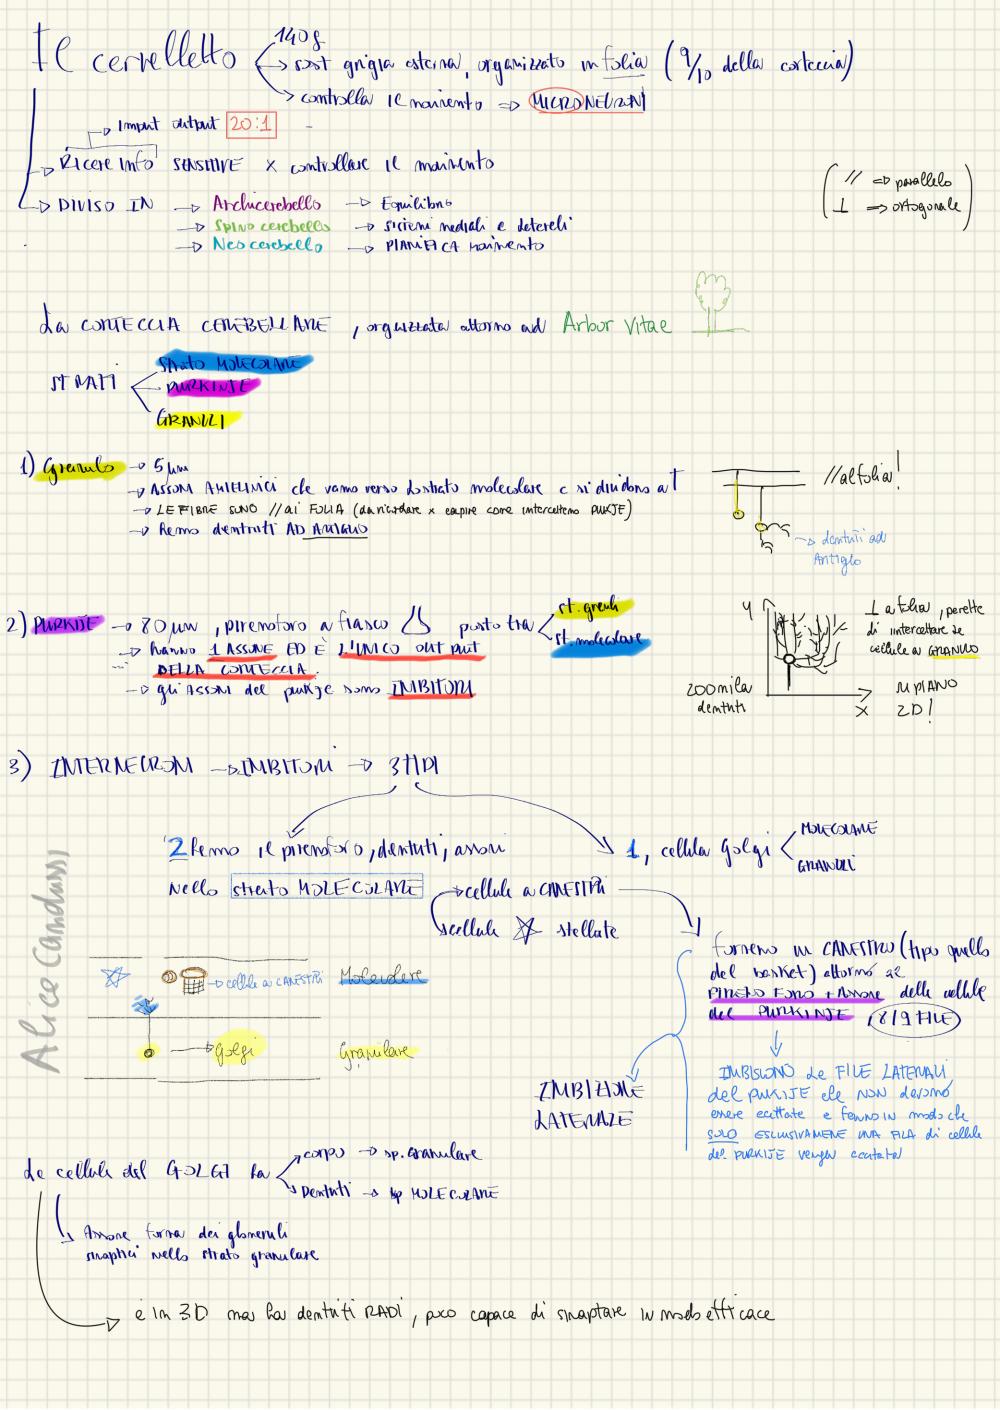 Il cervelletto
140g
→ sost grigia esterna, organizzato in folia (9/10 della corteccia)
→ controlla il movimento ⇒ MICRONEURONI
→ Imput output 20:1
→ Riceve info SENSITIVE x controllare il movimento
→ DIVISO IN → Archicerebello → Equilibrio
→ Spino cerebello → sistemi mediali e laterali
→ Neo cerebello → PIANIFICA movimento
// ⇒ parallelo
⊥ ⇒ ortogonale
La CORTECCIA CEREBELLARE, organizzata attorno ad Arbor Vitae
STRATI
Strato MOLECOLARE
PURKINJE
GRANULI
1) Granulo → 5 μm
→ ASSONI AMIELINICI che vanno verso lo strato molecolare e si dividono a T
→ LE FIBRE SONO // ai FOLIA (da ricordare x capire come intercettano PURKJE)
→ Hanno dentriti AD ARTIGLIO
// al folia!
→ dentriti ad
Artiglio
2) PURKIJE → 80 μm, pirenoforo a fiasco posto tra
st. granuli
st. molecolare
→ hanno 1 ASSONE ED È L'UNICO OUTPUT
DELLA CORTECCIA.
→ gli ASSONI del purkje sono INIBITORI
Y
X
200mila
dentriti
⊥ a folia, permette
di intercettare le
cellule a GRANULO
IN PIANO
2D!
3) INTERNEURONI → INIBITORI → 3 TIPI
2 hanno il pirenoforo, dentriti, assoni
nello strato MOLECOLARE
→ cellule a CANESTRI
cellule stellate
1, cellula Golgi
MOLECOLARE
GRANULI
formano un CANESTRO (tipo quello
del basket) attorno al
PIRENOFORO + ASSONE delle cellule
del PURKINJE (8/9 FILE)
INIBISCONO le FILE LATERALI
del PURKIJE che NON devono
essere eccitate e fanno in modo che
SOLO ESCLUSIVAMENTE UNA FILA di cellule
del PURKIJE venga eccitata
INIBIZIONE
LATERALE
→ cellule a CANESTRI Molecolare
→ Golgi Granulare
Alice Candussi
Le cellule del GOLGI ha
corpo → sp. Granulare
Dentriti → sp MOLECOLARE
Assone forma dei glomeruli
sinaptici nello strato granulare
è in 3D ma ha dentriti RADI, poco capace di sinaptare in modo efficace